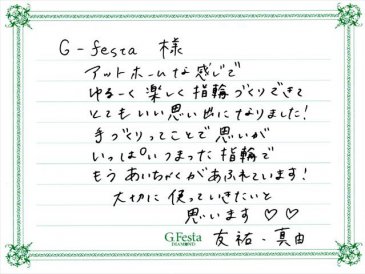 G-festa 様
アットホームな感じで
ゆるーく楽しく指輪づくりできて
とてもいい思い出になりました!
手づくりってことで思いが
いっぱいつまった指輪で
もうあいちゃくがあふれています!
大切に使っていきたいと
思います♡♡
G.Festa
DIAMOND
友祐・真由